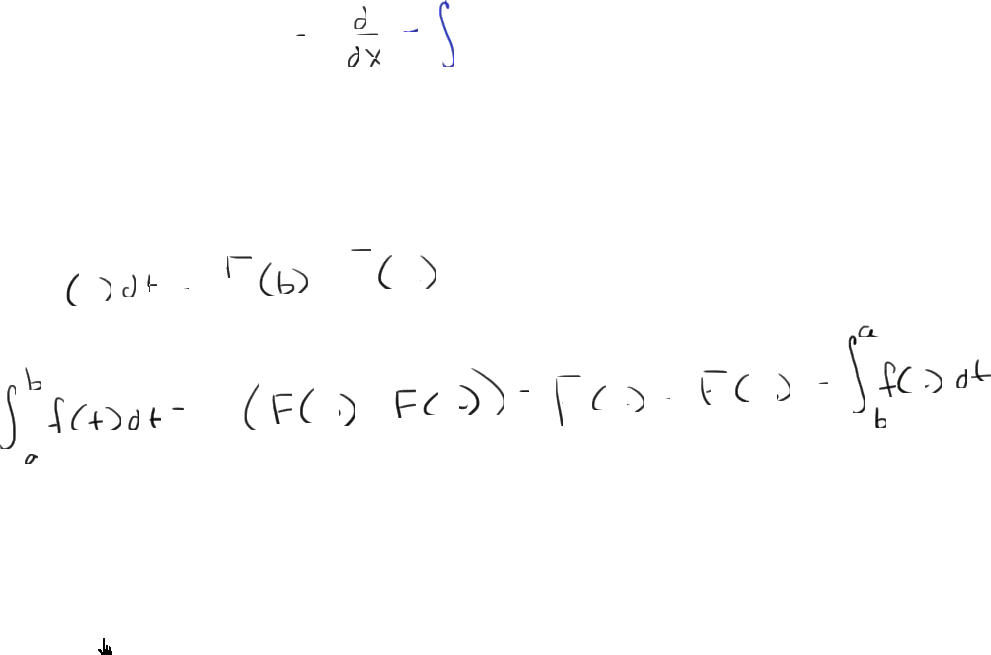 - d/dx - ∫
( ) dt - F(b) - ( )
∫_a^b f(t) dt - (F( ) F( )) - F( ) - F( ) - ∫_b^a f( ) dt